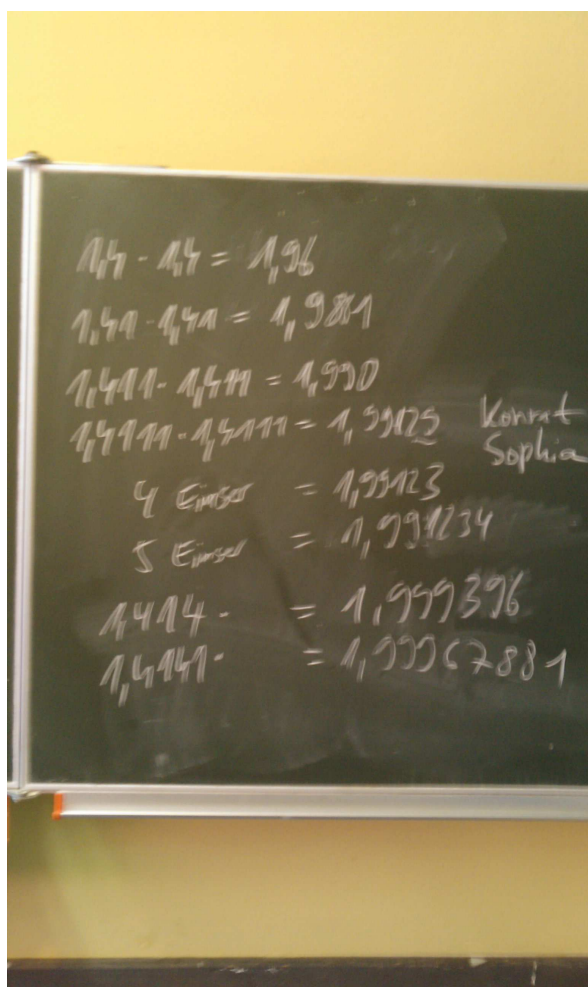 1,4 · 1,4 = 1,96
1,41 · 1,41 = 1,9881
1,411 · 1,411 = 1,990
1,4111 · 1,4111 = 1,99129 Konrat
Sophia
4 Einser = 1,99123
5 Einser = 1,991234
1,414 · = 1,999396
1,4141 · = 1,99967881